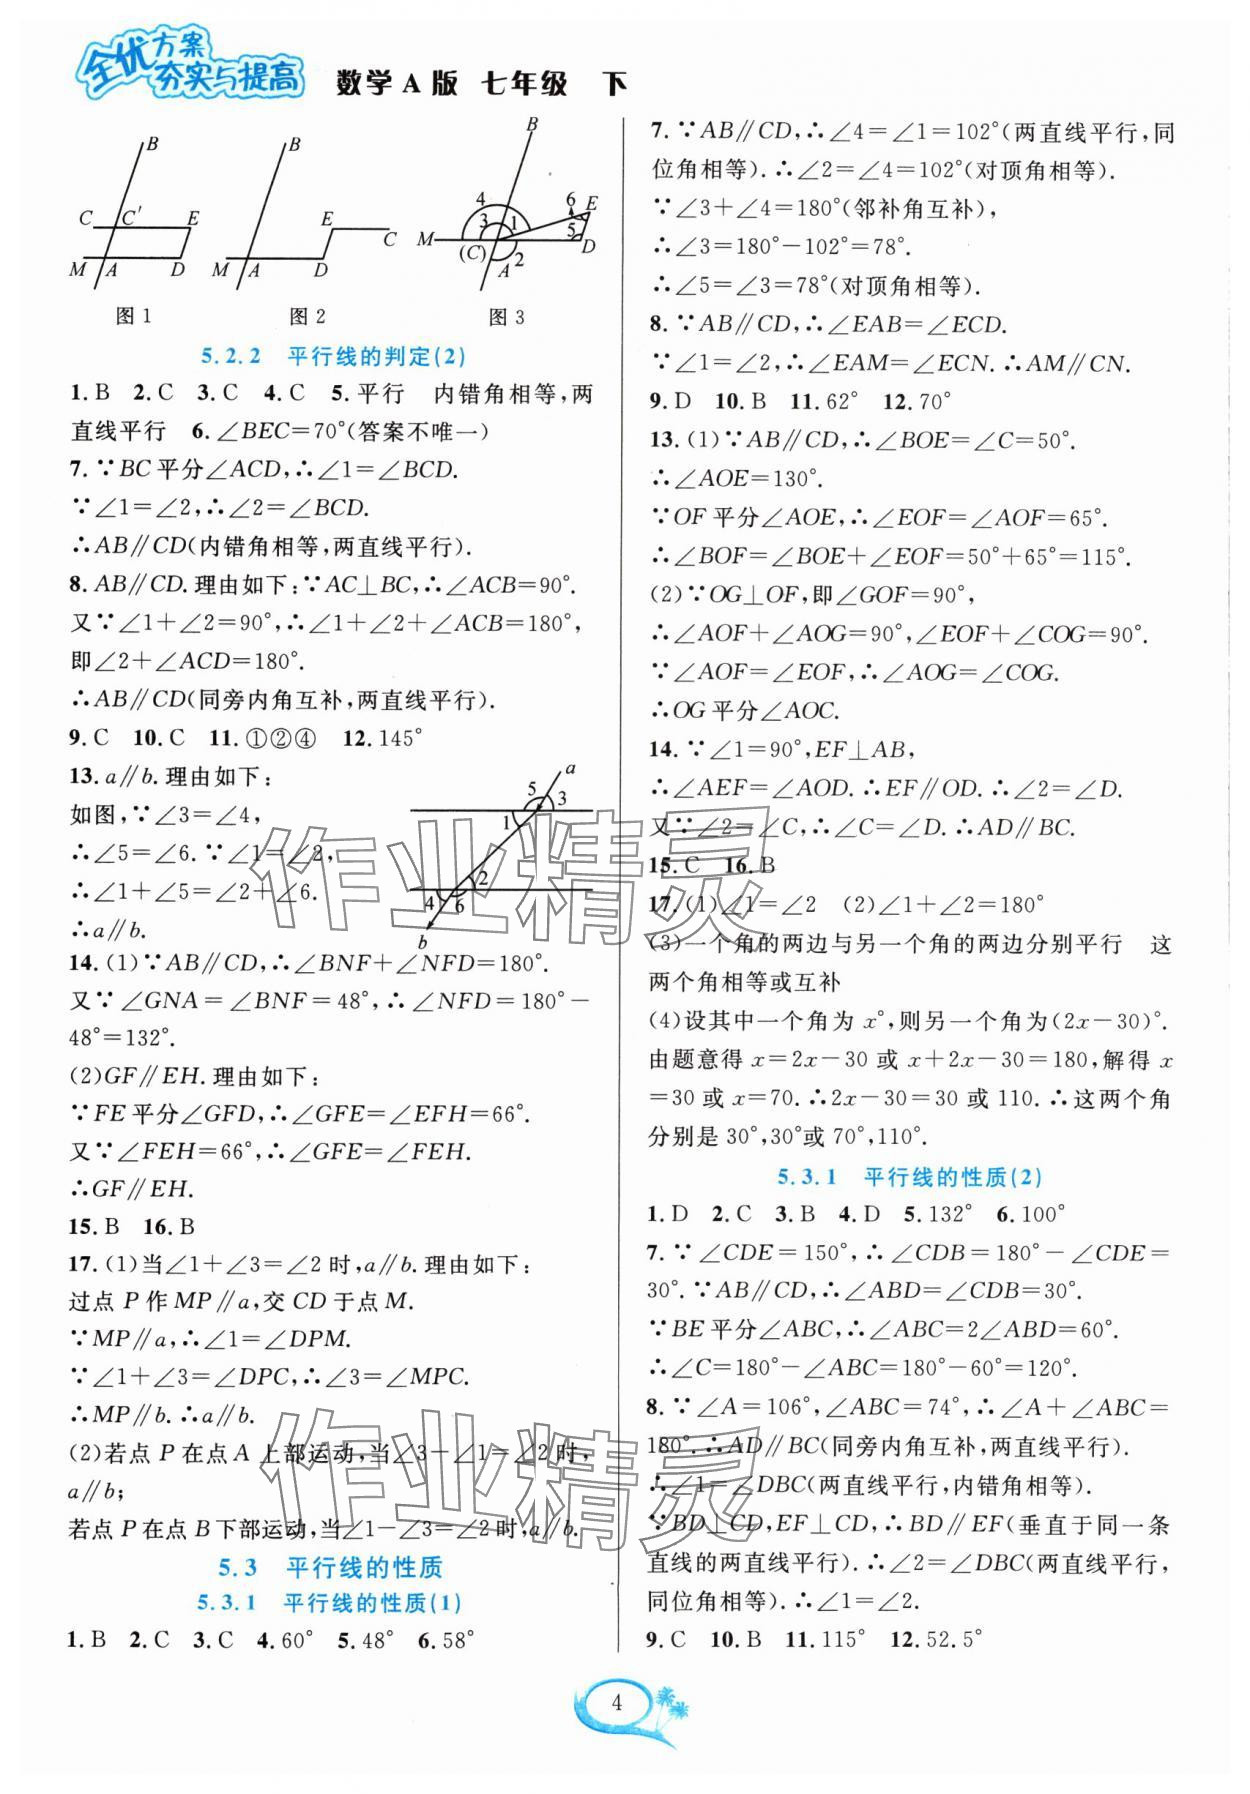 全优方案
夯实与提高
数学A版 七年级 下
B
C C' E
M A D
图1
B
E
C
M A D
图2
B
4 6 E
3 1
M 5
(C) 2 D
A
图3
5.2.2 平行线的判定(2)
1.B 2.C 3.C 4.C 5.平行 内错角相等,两
直线平行 6.∠BEC=70°(答案不唯一)
7.∵BC平分∠ACD,∴∠1=∠BCD.
∵∠1=∠2,∴∠2=∠BCD.
∴AB∥CD(内错角相等,两直线平行).
8.AB∥CD.理由如下:∵AC⊥BC,∴∠ACB=90°.
又∵∠1+∠2=90°,∴∠1+∠2+∠ACB=180°,
即∠2+∠ACD=180°.
∴AB∥CD(同旁内角互补,两直线平行).
9.C 10.C 11.①②④ 12.145°
13.a∥b.理由如下:
如图,∵∠3=∠4,
∴∠5=∠6.∵∠1=∠2,
∴∠1+∠5=∠2+∠6.
∴a∥b.
a
5 3
1
2
4 6
b
14.(1)∵AB∥CD,∴∠BNF+∠NFD=180°.
又∵∠GNA=∠BNF=48°,∴∠NFD=180°-
48°=132°.
(2)GF∥EH.理由如下:
∵FE平分∠GFD,∴∠GFE=∠EFH=66°.
又∵∠FEH=66°,∴∠GFE=∠FEH.
∴GF∥EH.
15.B 16.B
17.(1)当∠1+∠3=∠2时,a∥b.理由如下:
过点P作MP∥a,交CD于点M.
∵MP∥a,∴∠1=∠DPM.
∵∠1+∠3=∠DPC,∴∠3=∠MPC.
∴MP∥b.∴a∥b.
(2)若点P在点A上部运动,当∠3-∠1=∠2时,
a∥b;
若点P在点B下部运动,当∠1-∠3=∠2时,a∥b.
5.3 平行线的性质
5.3.1 平行线的性质(1)
1.B 2.C 3.C 4.60° 5.48° 6.58°
7.∵AB∥CD,∴∠4=∠1=102°(两直线平行,同
位角相等).∴∠2=∠4=102°(对顶角相等).
∵∠3+∠4=180°(邻补角互补),
∴∠3=180°-102°=78°.
∴∠5=∠3=78°(对顶角相等).
8.∵AB∥CD,∴∠EAB=∠ECD.
∵∠1=∠2,∴∠EAM=∠ECN.∴AM∥CN.
9.D 10.B 11.62° 12.70°
13.(1)∵AB∥CD,∴∠BOE=∠C=50°.
∴∠AOE=130°.
∵OF平分∠AOE,∴∠EOF=∠AOF=65°.
∴∠BOF=∠BOE+∠EOF=50°+65°=115°.
(2)∵OG⊥OF,即∠GOF=90°,
∴∠AOF+∠AOG=90°,∠EOF+∠COG=90°.
∵∠AOF=∠EOF,∴∠AOG=∠COG.
∴OG平分∠AOC.
14.∵∠1=90°,EF⊥AB,
∴∠AEF=∠AOD.∴EF∥OD.∴∠2=∠D.
又∵∠2=∠C,∴∠C=∠D.∴AD∥BC.
15.C 16.B
17.(1)∠1=∠2 (2)∠1+∠2=180°
(3)一个角的两边与另一个角的两边分别平行 这
两个角相等或互补
(4)设其中一个角为x°,则另一个角为(2x-30)°.
由题意得x=2x-30或x+2x-30=180,解得x
=30或x=70.∴2x-30=30或110.∴这两个角
分别是30°,30°或70°,110°.
5.3.1 平行线的性质(2)
1.D 2.C 3.B 4.D 5.132° 6.100°
7.∵∠CDE=150°,∴∠CDB=180°-∠CDE=
30°.∵AB∥CD,∴∠ABD=∠CDB=30°.
∵BE平分∠ABC,∴∠ABC=2∠ABD=60°.
∴∠C=180°-∠ABC=180°-60°=120°.
8.∵∠A=106°,∠ABC=74°,∴∠A+∠ABC=
180°.∴AD∥BC(同旁内角互补,两直线平行).
∴∠1=∠DBC(两直线平行,内错角相等).
∵BD⊥CD,EF⊥CD,∴BD∥EF(垂直于同一条
直线的两直线平行).∴∠2=∠DBC(两直线平行,
同位角相等).∴∠1=∠2.
9.C 10.B 11.115° 12.52.5°
作业精灵
作业精灵
4